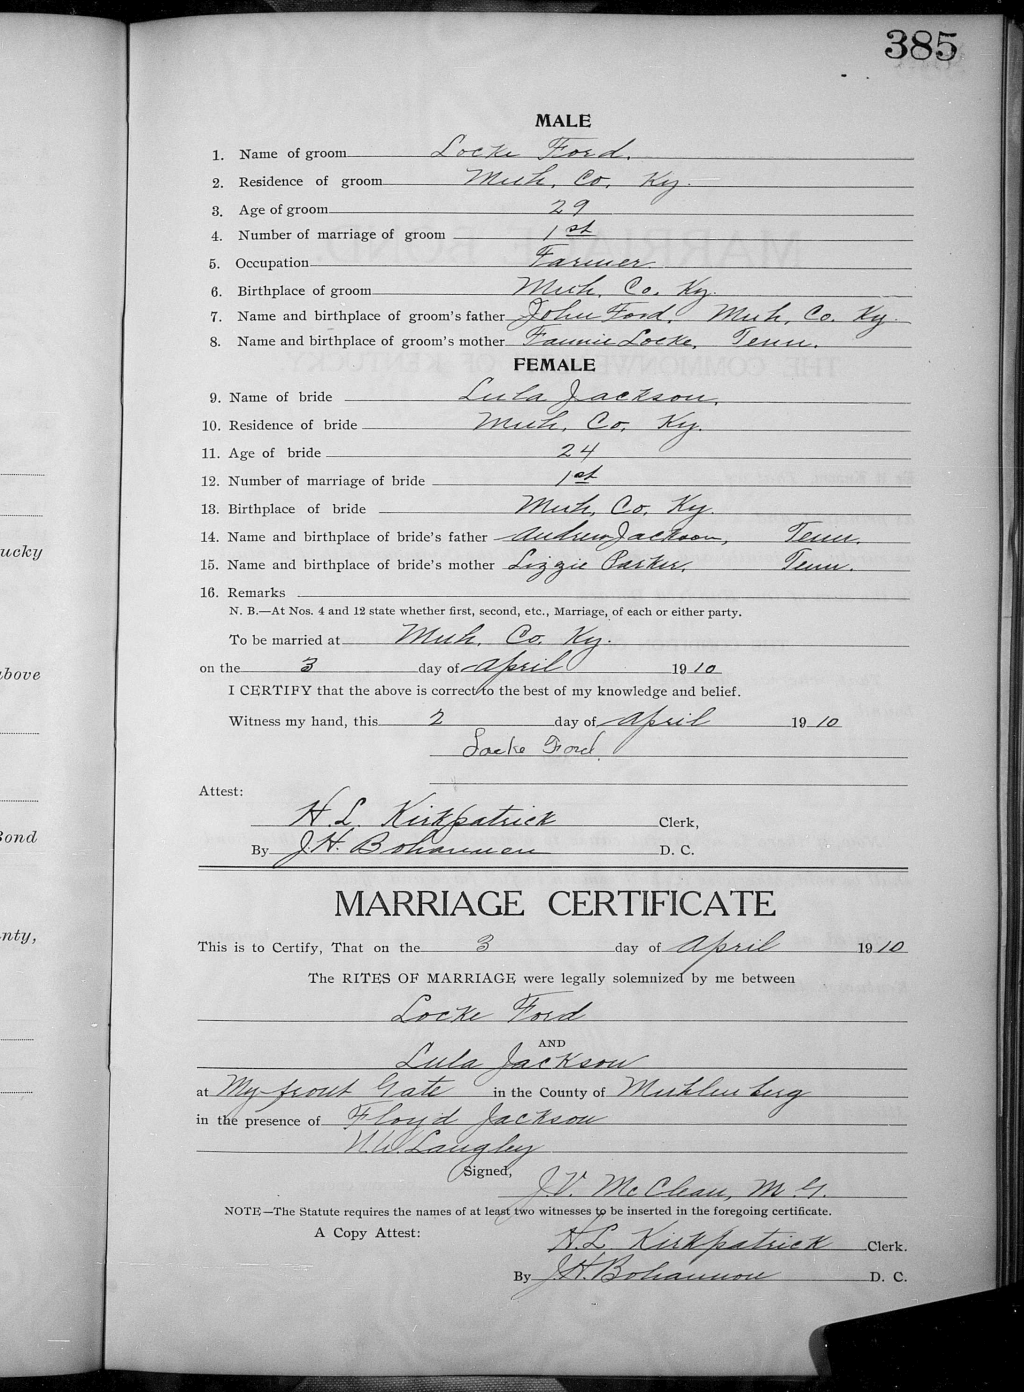 385
MALE
1. Name of groom Locke Ford.
2. Residence of groom Muh. Co. Ky.
3. Age of groom 29
4. Number of marriage of groom 1st
5. Occupation Farmer.
6. Birthplace of groom Muh. Co. Ky.
7. Name and birthplace of groom's father John Ford, Muh. Co. Ky.
8. Name and birthplace of groom's mother Fannie Locke, Tenn.
FEMALE
9. Name of bride Lula Jackson.
10. Residence of bride Muh. Co. Ky.
11. Age of bride 24
12. Number of marriage of bride 1st
13. Birthplace of bride Muh. Co. Ky.
14. Name and birthplace of bride's father Andrew Jackson, Tenn.
15. Name and birthplace of bride's mother Lizzie Parker, Tenn.
16. Remarks
N. B.—At Nos. 4 and 12 state whether first, second, etc., Marriage, of each or either party.
To be married at Muh. Co. Ky.
on the 3 day of April 1910
I CERTIFY that the above is correct to the best of my knowledge and belief.
Witness my hand, this 2 day of April 1910
Locke Ford.
Attest:
H. L. Kirkpatrick Clerk,
By J. H. Bohannon D. C.
MARRIAGE CERTIFICATE
This is to Certify, That on the 3 day of April 1910
The RITES OF MARRIAGE were legally solemnized by me between
Locke Ford
AND
Lula Jackson
at My front Gate in the County of Muhlenberg
in the presence of Floyd Jackson
N. W. Langley
Signed,
J. V. McClean, M. G.
NOTE—The Statute requires the names of at least two witnesses to be inserted in the foregoing certificate.
A Copy Attest:
H. L. Kirkpatrick Clerk.
By J. H. Bohannon D. C.
ucky
above
Bond
nty,